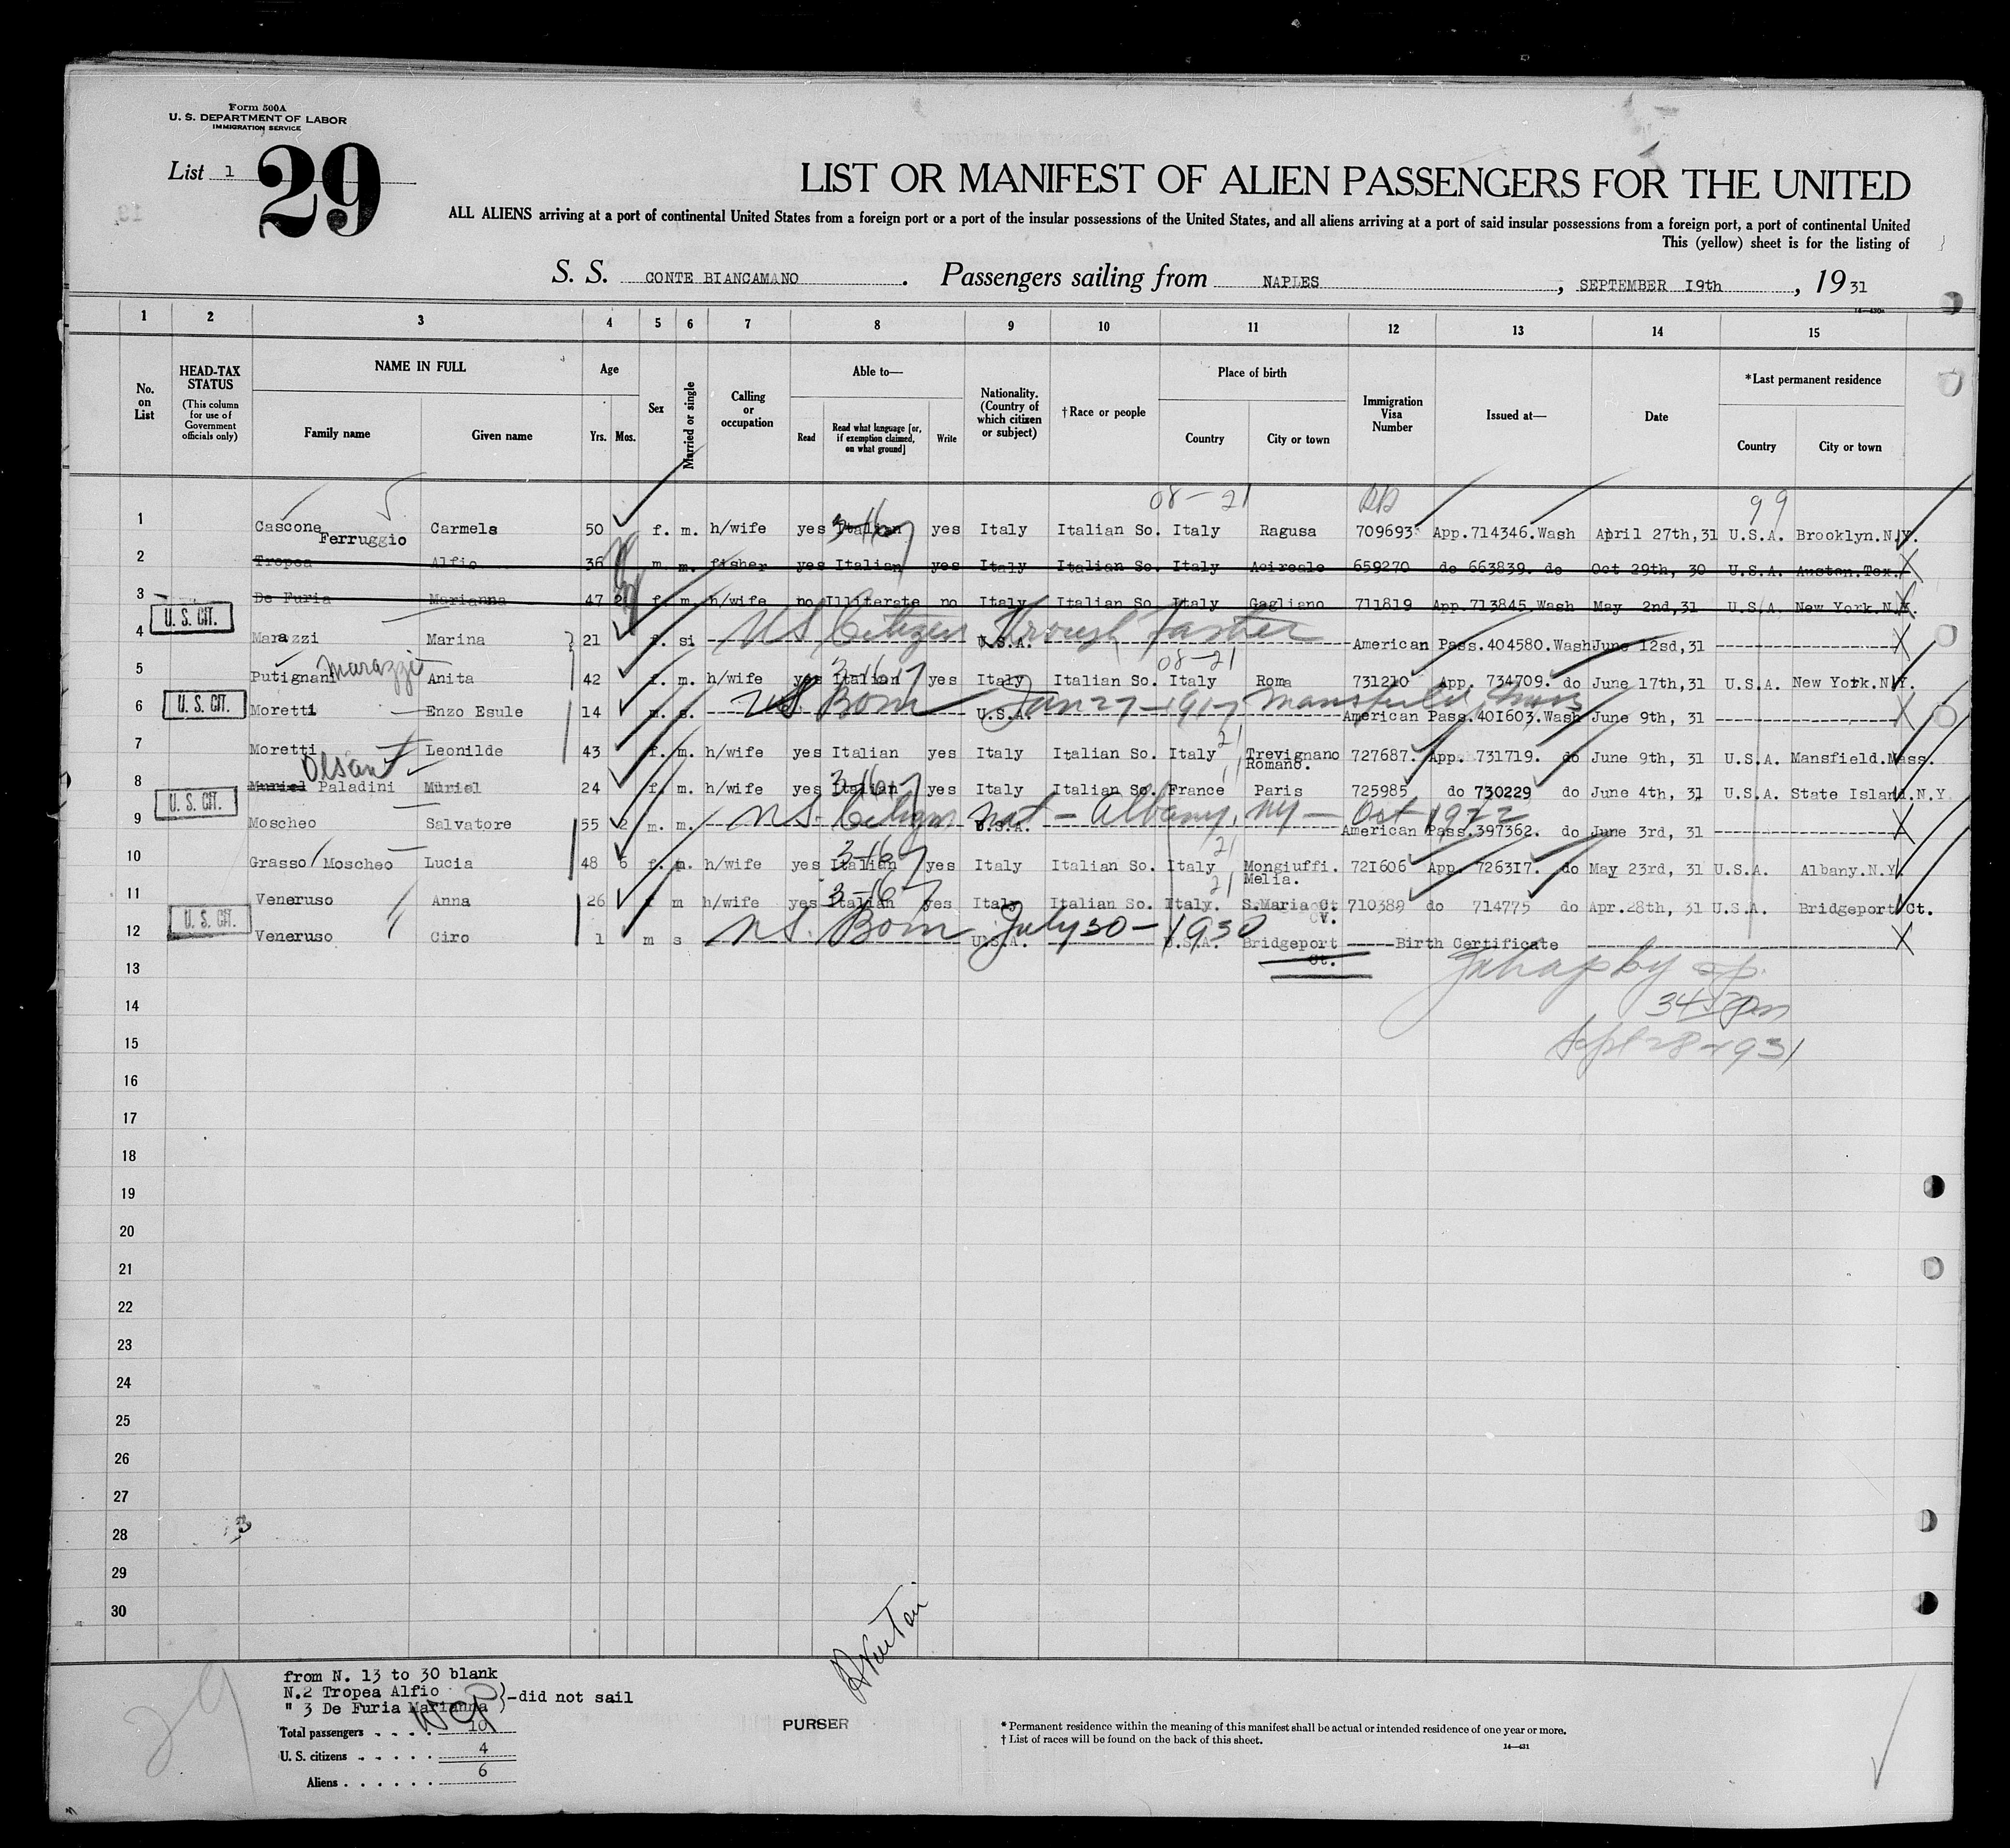 Form 500A
U. S. DEPARTMENT OF LABOR
IMMIGRATION SERVICE
List 1
29
LIST OR MANIFEST OF ALIEN PASSENGERS FOR THE UNITED
ALL ALIENS arriving at a port of continental United States from a foreign port or a port of the insular possessions of the United States, and all aliens arriving at a port of said insular possessions from a foreign port, a port of continental United
This (yellow) sheet is for the listing of
S. S. CONTE BIANCAMANO. Passengers sailing from NAPLES, SEPTEMBER 19th, 1931
14—430a
1 2 3 4 5 6 7 8 9 10 11 12 13 14 15
No. on List
HEAD-TAX STATUS
(This column for use of Government officials only)
NAME IN FULL
Family name
Given name
Age
Yrs. Mos.
Sex
Married or single
Calling or occupation
Able to—
Read
Read what language [or, if exemption claimed, on what ground]
Write
Nationality. (Country of which citizen or subject)
†Race or people
Place of birth
Country
City or town
Immigration Visa Number
Issued at—
Date
*Last permanent residence
Country
City or town
08-21
99
1 Cascone Ferruggio Carmela 50 f. m. h/wife yes Italian 3-16 yes Italy Italian So. Italy Ragusa 709693 App.714346.Wash April 27th,31 U.S.A. Brooklyn.N.Y.
2 Tropea Alfio 36 m. m. fisher yes Italian yes Italy Italian So. Italy Acireale 659270 do 663839. do Oct 29th, 30 U.S.A. Austen.Tex.
3 De Furia Marianna 47 2 f. m. h/wife no Illiterate no Italy Italian So. Italy Gagliano 711819 App.713845.Wash May 2nd,31 U.S.A. New York.N.Y.
U. S. CIT.
4 Marazzi Marina 21 f. si. US Citizen through Father U.S.A. American Pass.404580.Wash June 12sd,31
08-21
5 Putignani Marazzi Anita 42 f. m. h/wife yes Italian 3-16 yes Italy Italian So. Italy Roma 731210 App. 734709. do June 17th,31 U.S.A. New York.N.Y.
U. S. CIT.
6 Moretti Enzo Esule 14 m. s. US Born Jan 27-1917 Mansfield Mass U.S.A. American Pass.401603.Wash June 9th, 31
21
7 Moretti Leonilde 43 f. m. h/wife yes Italian yes Italy Italian So. Italy Trevignano Romano. 727687. App. 731719. do June 9th, 31 U.S.A. Mansfield.Mass.
Olsan
8 Muriel Paladini Muriel 24 f. m. h/wife yes Italian 3-16 yes Italy Italian So. France Paris 725985 do 730229 do June 4th, 31 U.S.A. State Island.N.Y
U. S. CIT.
9 Moscheo Salvatore 55 2 m. m. US Citizen nat - Albany, NY - Oct 1922 U.S.A. American Pass.397362. do June 3rd, 31
21
10 Grasso Moscheo Lucia 48 6 f. m. h/wife yes Italian 3-16 yes Italy Italian So. Italy Mongiuffi. Melia. 721606 App. 726317. do May 23rd, 31 U.S.A. Albany.N.Y.
21
11 Veneruso Anna 26 f m h/wife yes Italian 3-16 yes Italy Italian So. Italy. S.Maria C. V. 710389 do 714775 do Apr.28th, 31 U.S.A. Bridgeport Ct.
U. S. CIT.
12 Veneruso Ciro 1 m s US. Born July 30-1930 U.S.A. U.S.A. Bridgeport Ct. Birth Certificate
13
14
Sept 28-1931
15
16
17
18
19
20
21
22
23
24
25
26
27
28
29
30
from N. 13 to 30 blank
N.2 Tropea Alfio
" 3 De Furia Marianna )-did not sail
Total passengers 10
U. S. citizens 4
Aliens 6
29
PURSER
* Permanent residence within the meaning of this manifest shall be actual or intended residence of one year or more.
† List of races will be found on the back of this sheet.
14—431